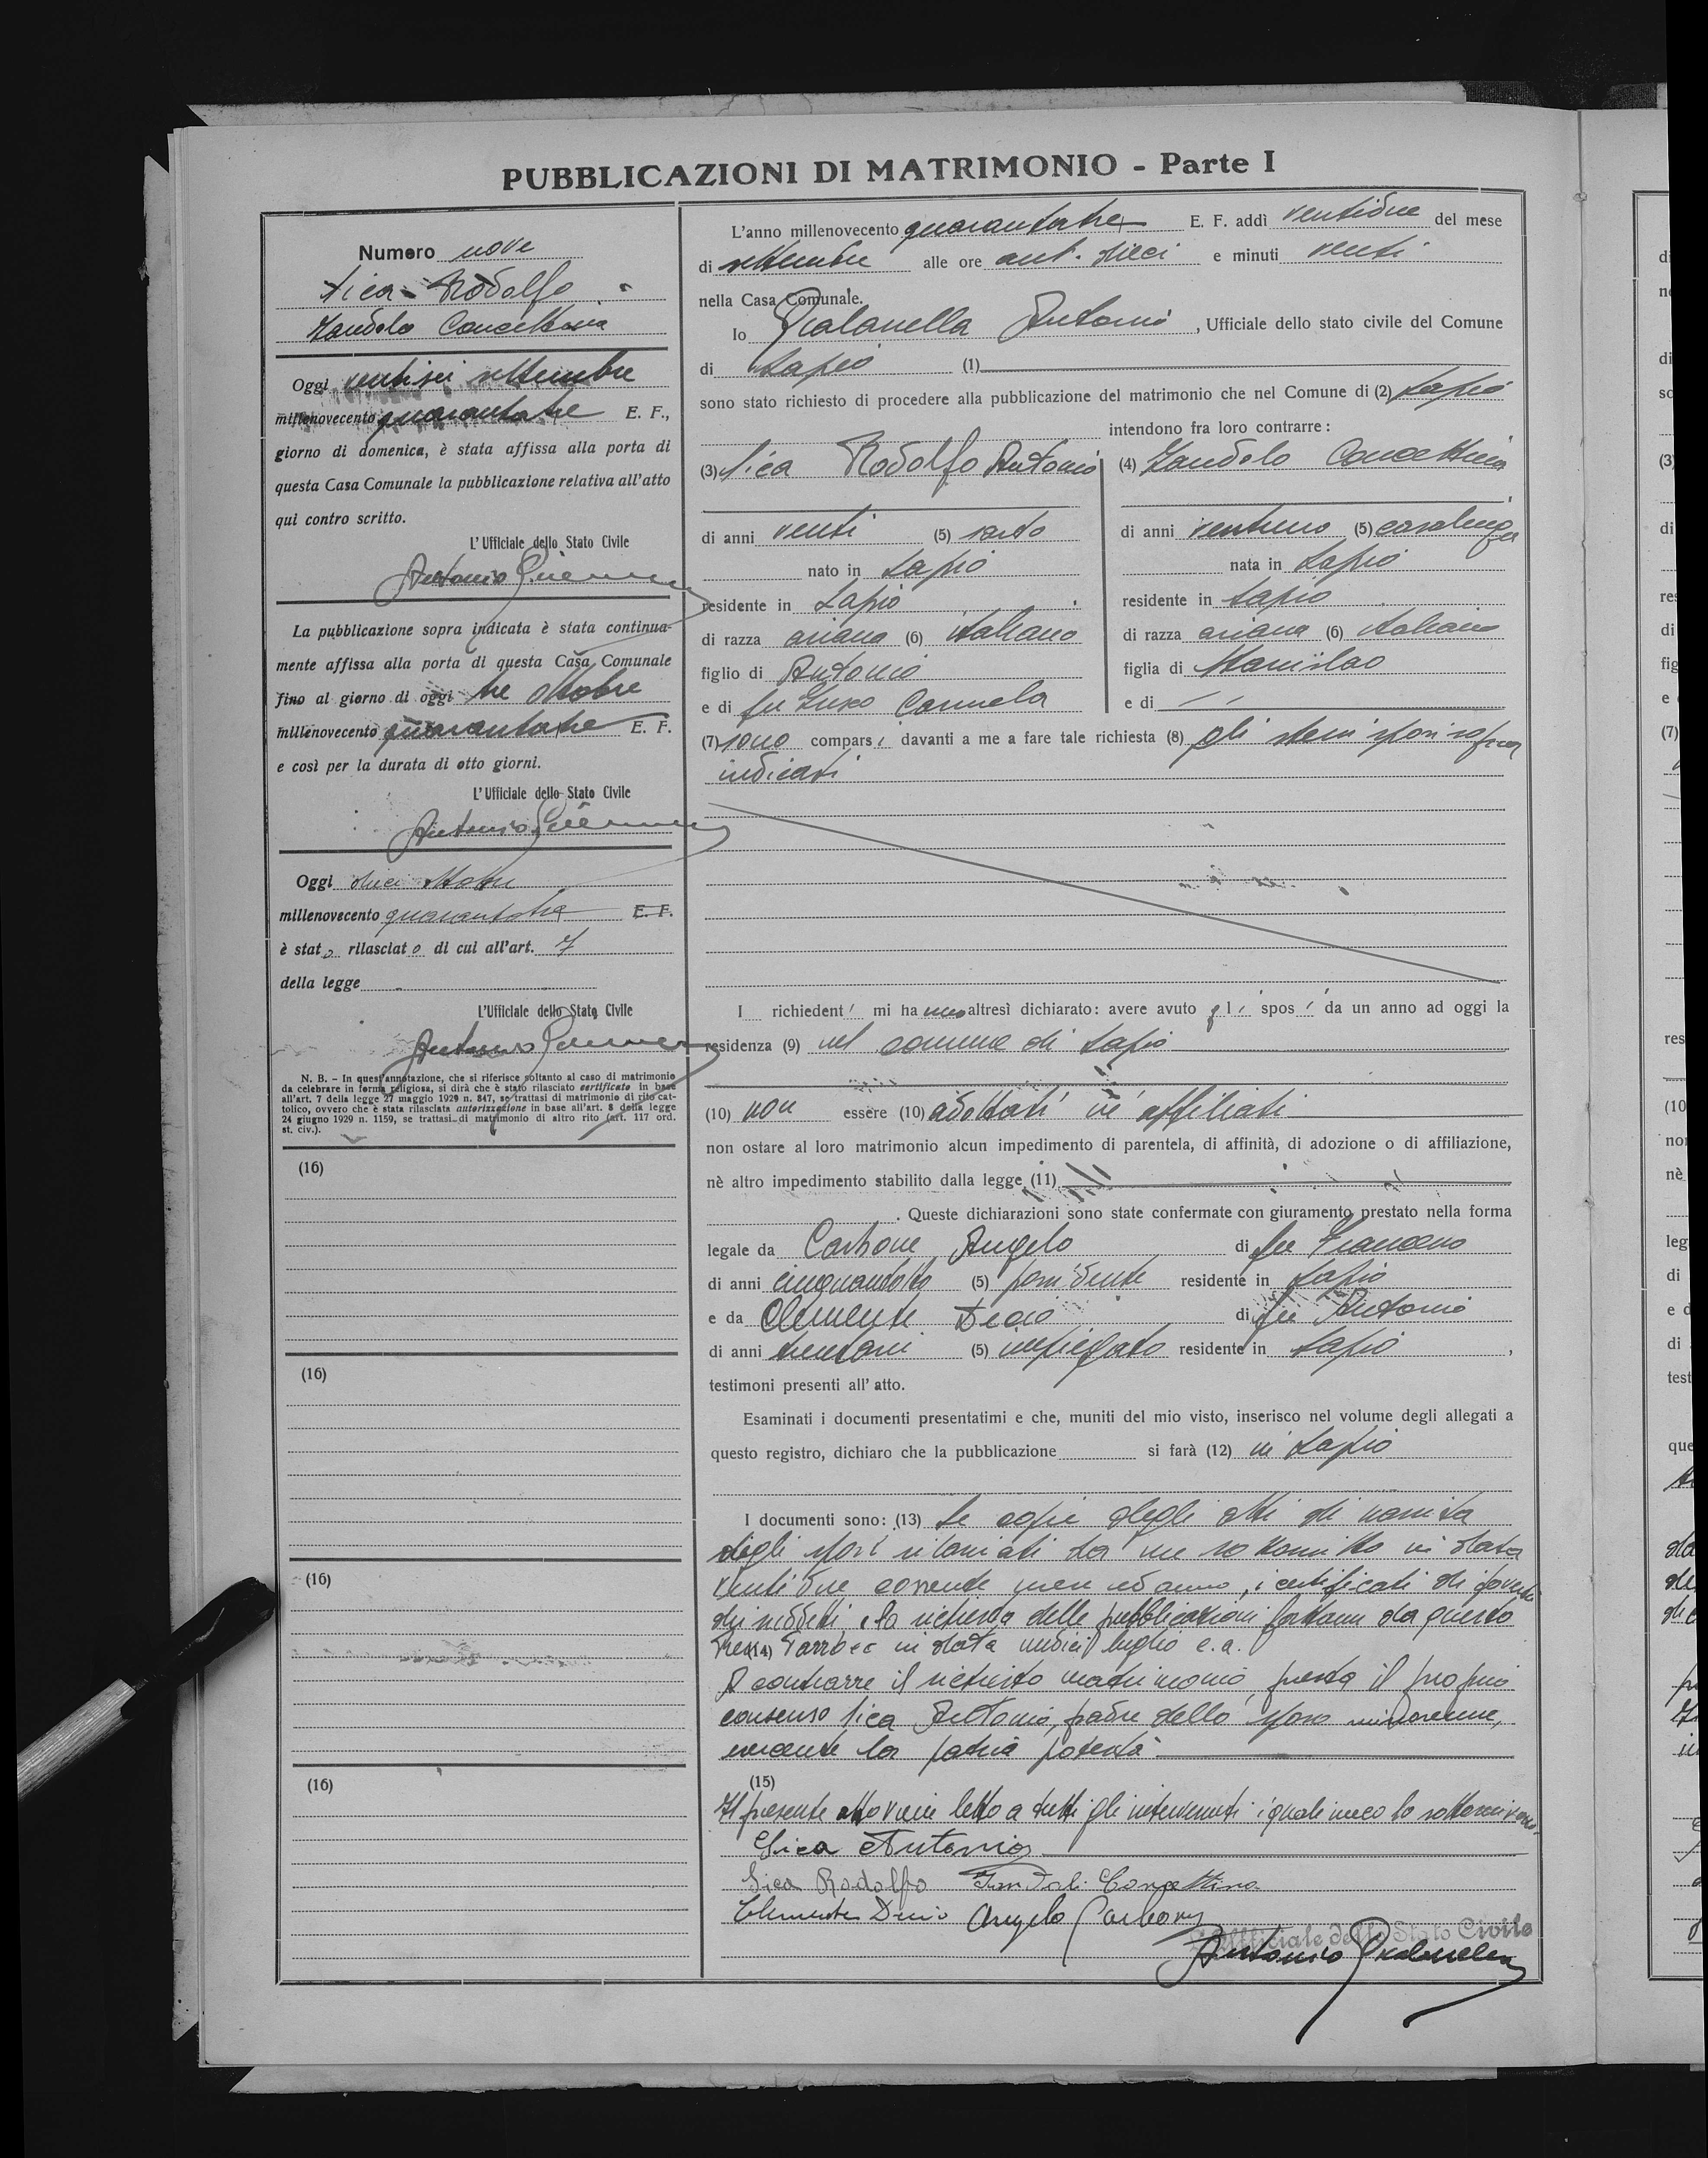 PUBBLICAZIONI DI MATRIMONIO - Parte I
Numero nove
Sica Rodolfo
Zandolo Concettina
Oggi ventisei settembre
millenovecento quarantatre E. F.,
giorno di domenica, è stata affissa alla porta di
questa Casa Comunale la pubblicazione relativa all'atto
qui contro scritto.
L'Ufficiale dello Stato Civile
Antonio
La pubblicazione sopra indicata è stata continua-
mente affissa alla porta di questa Casa Comunale
fino al giorno di oggi tre ottobre
millenovecento quarantatre E. F.
e così per la durata di otto giorni.
L'Ufficiale dello Stato Civile
Antonio
Oggi dieci ottobre
millenovecento quarantatre E. F.
è stato rilasciato di cui all'art. 7
della legge
L'Ufficiale dello Stato Civile
Antonio
N. B. - In quest'annotazione, che si riferisce soltanto al caso di matrimonio
da celebrare in forma religiosa, si dirà che è stato rilasciato certificato in base
all'art. 7 della legge 27 maggio 1929 n. 847, se trattasi di matrimonio di rito cat-
tolico, ovvero che è stata rilasciata autorizzazione in base all'art. 8 della legge
24 giugno 1929 n. 1159, se trattasi di matrimonio di altro rito (art. 117 ord.
st. civ.).
(16)
(16)
(16)
(16)
L'anno millenovecento quarantatre E. F. addì ventidue del mese
di settembre alle ore ant. dieci e minuti venti
nella Casa Comunale.
Io Antonio, Ufficiale dello stato civile del Comune
di Lapio (1)
sono stato richiesto di procedere alla pubblicazione del matrimonio che nel Comune di (2) Lapio
intendono fra loro contrarre:
(3) Sica Rodolfo Antonio
di anni venti (5) sarto
nato in Lapio
residente in Lapio
di razza ariana (6) italiano
figlio di Antonio
e di fu Carmela
(4) Zandolo Concettina
di anni ventuno (5) casalinga
nata in Lapio
residente in Lapio
di razza ariana (6) italiana
figlia di Stanislao
e di
(7) sono comparsi davanti a me a fare tale richiesta (8) gli stessi sposi sopra
indicati
I richiedenti mi hanno altresì dichiarato: avere avuto gli sposi da un anno ad oggi la
residenza (9) nel comune di Lapio
(10) non essere (10) adottati nè affiliati
non ostare al loro matrimonio alcun impedimento di parentela, di affinità, di adozione o di affiliazione,
nè altro impedimento stabilito dalla legge (11)
. Queste dichiarazioni sono state confermate con giuramento prestato nella forma
legale da Carbone Angelo di fu Francesco
di anni cinquantotto (5) possidente residente in Lapio
e da Clemente Decio di fu Antonio
di anni trentasei (5) impiegato residente in Lapio,
testimoni presenti all'atto.
Esaminati i documenti presentatimi e che, muniti del mio visto, inserisco nel volume degli allegati a
questo registro, dichiaro che la pubblicazione si farà (12) in Lapio
I documenti sono: (13) Le copie degli atti di nascita
degli sposi rilasciati da me sottoscritto in data
ventidue corrente mese ed anno, i certificati di
dei suddetti, e la richiesta delle pubblicazioni fattami da questo
(14) Parroco in data undici luglio c.a.
A contrarre il richiesto matrimonio, presta il proprio
consenso Sica Antonio, padre dello sposo minorenne,
esercente la patria potestà
(15)
Il presente atto viene letto a tutti gli intervenuti i quali meco lo sottoscrivono.
Sica Antonio
Sica Rodolfo Concettina
Clemente Decio Angelo Carbone
L'Ufficiale dello Stato Civile
Antonio